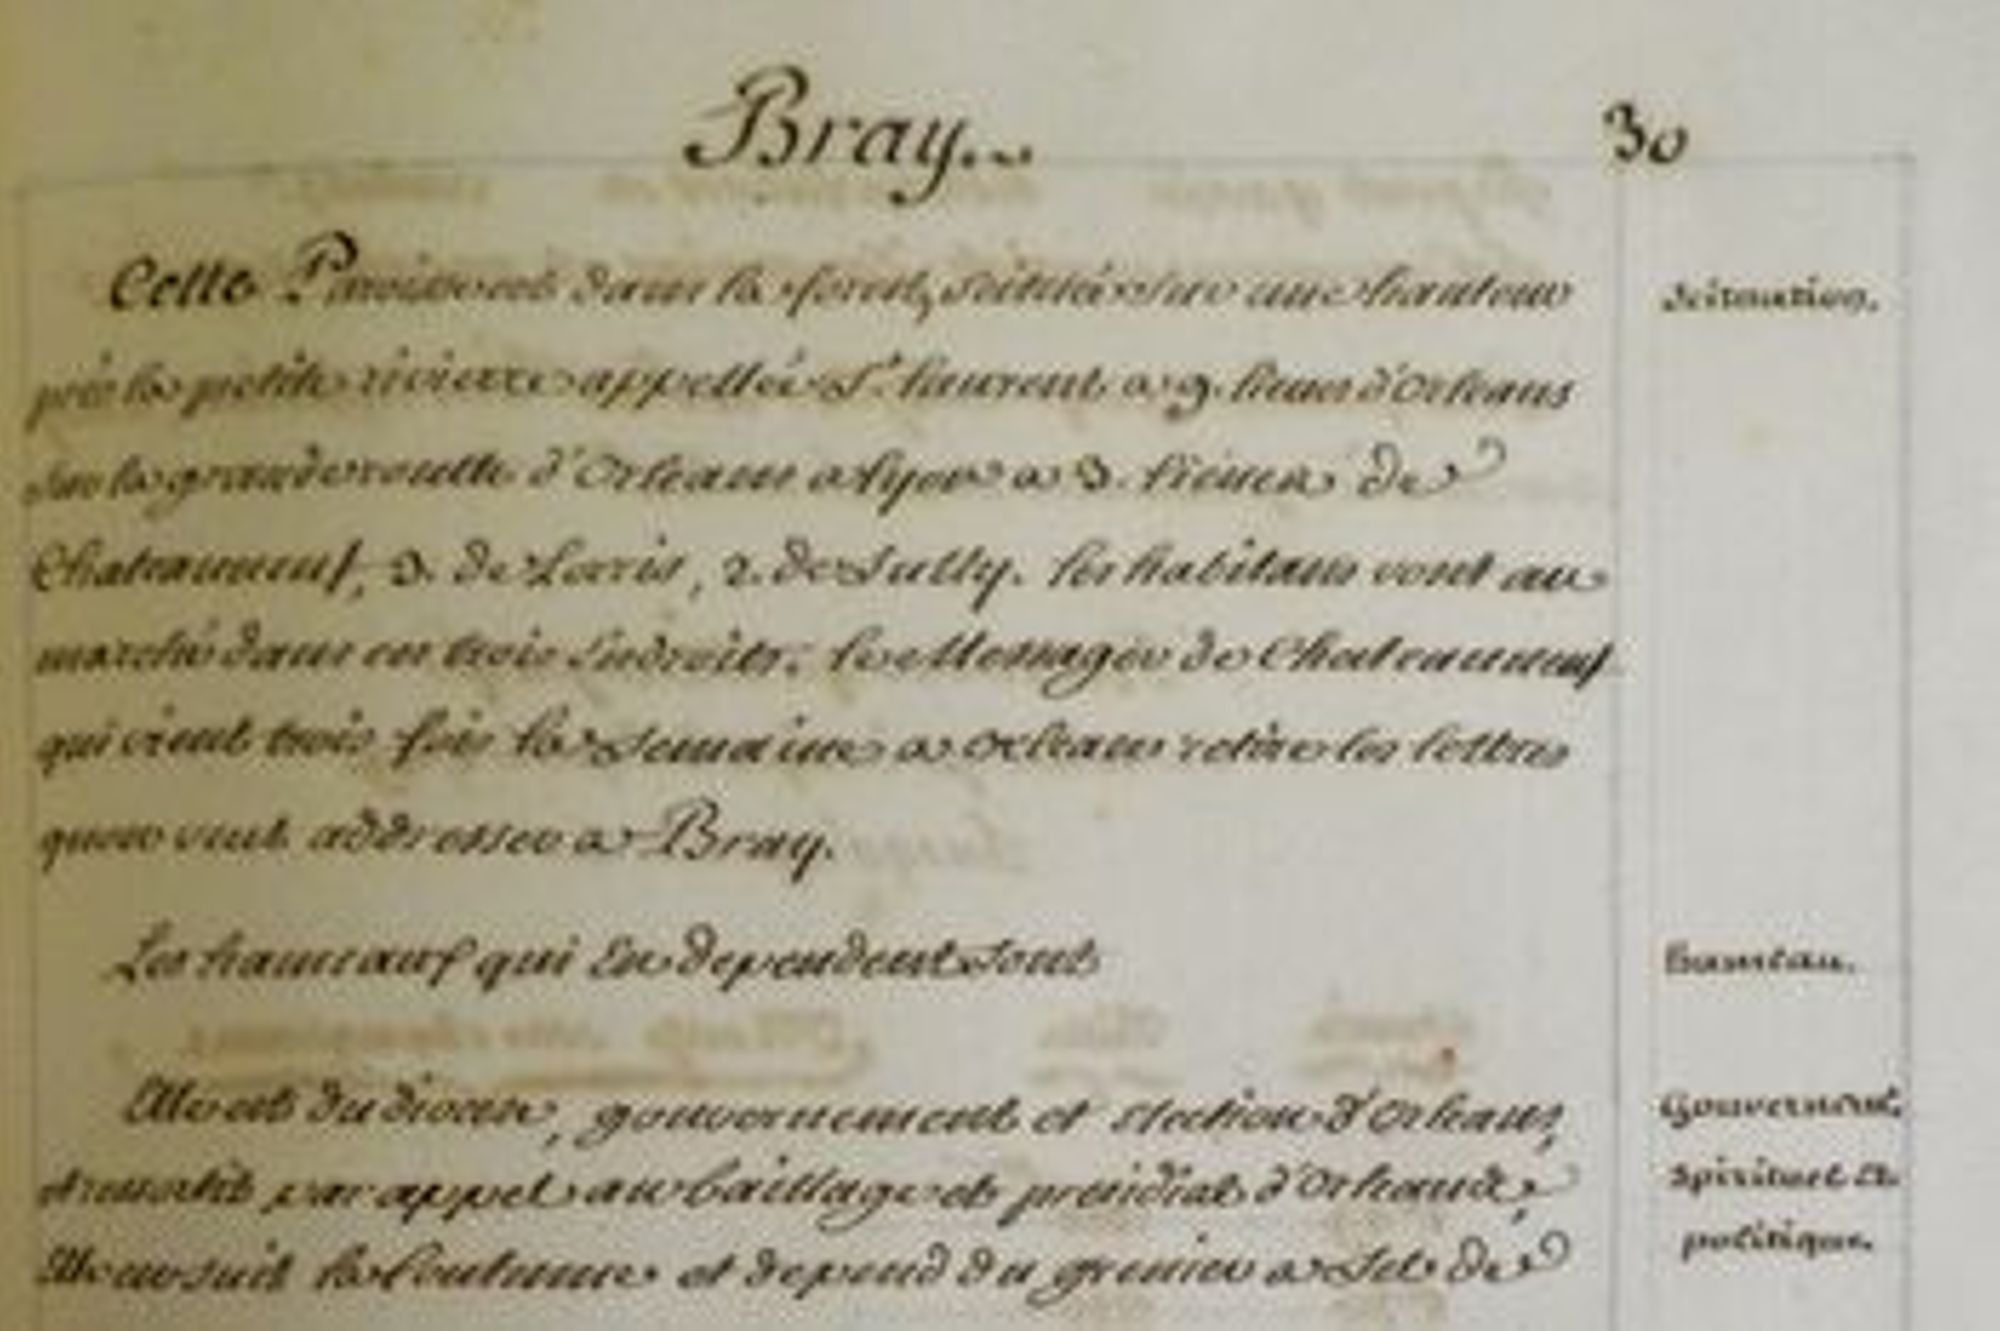 Bray..
30
Cette Paroisse est dans la forest, scituée sur une hauteur
scituation.
près la petite rivierre appellée St. Laurent a 9. lieues d'Orleans
sur la grande routte d'Orleans a Lyon a 3. lieues de
Chateauneuf, 3. de Lorris, 2. de Sully. les habitans vont au
marché dans ces trois Endroits. le Messager de Chateauneuf
qui vient trois fois la semaine a Orleans retire les lettres
quon veut addresser a Bray.
Les hameaux qui En dependent sont
hameau.
Elle est du diocese, gouvernement et election d'Orleans,
Gouvernemt.
et ressortit par appel au baillage et presidial d'Orleans,
spirituel et
Elle en suit la Coutume et depend du grenier a Sel de
politique.